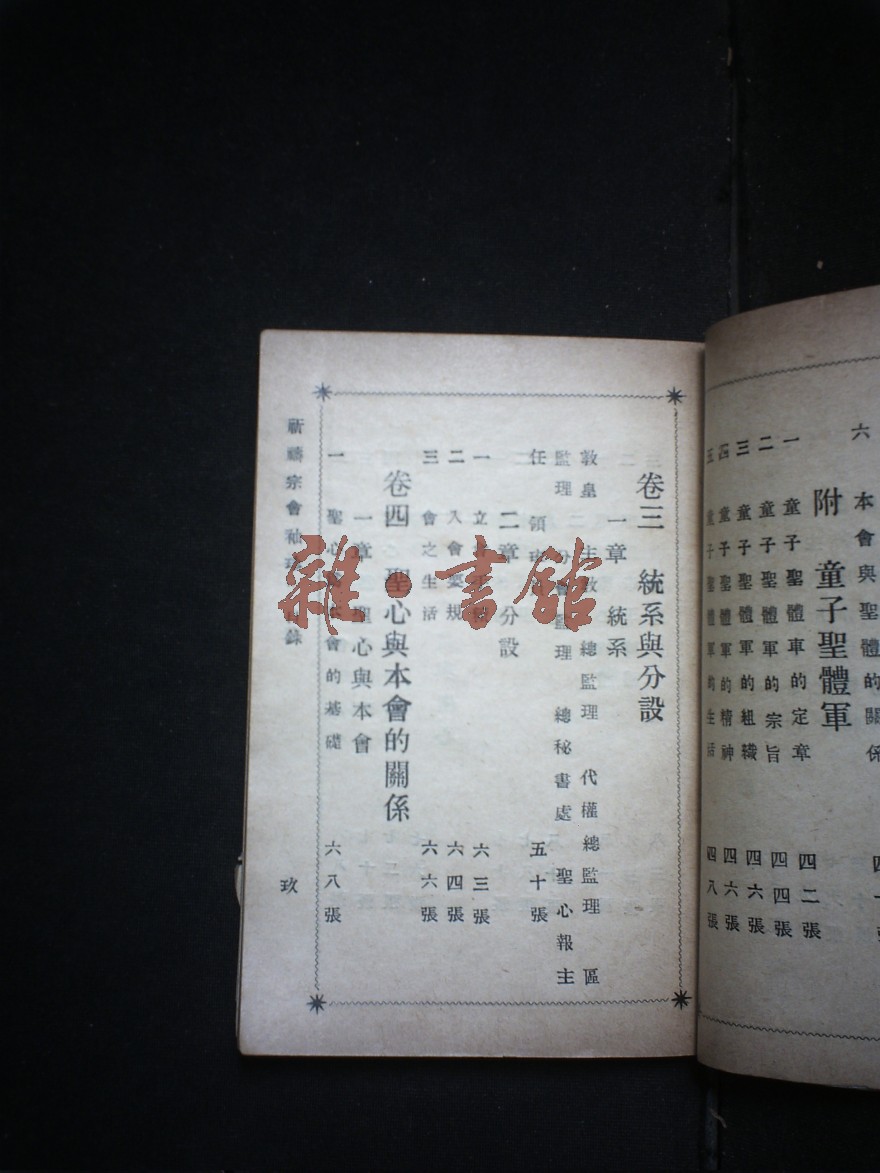 六 本會與聖體的關係
附 童子聖體軍
一 童子聖體車的定章 四二張
二 童子聖體軍的宗旨 四四張
三 童子聖體軍的組織 四六張
四 童子聖體軍的精神 四六張
五 童子聖體軍的生活 四八張
卷三 統系與分設
一章 統系
教皇 主教 總監理 代權總監理 區
監理 分會監理 總秘書處 聖心報主
任 領 五十張
二章 分設
一 立 六三張
二 入會要規 六四張
三 會之生活 六六張
卷四 聖心與本會的關係
一章 聖心與本會
一 聖心 會的基礎 六八張
祈禱宗會袖 錄
玖
雜·書館